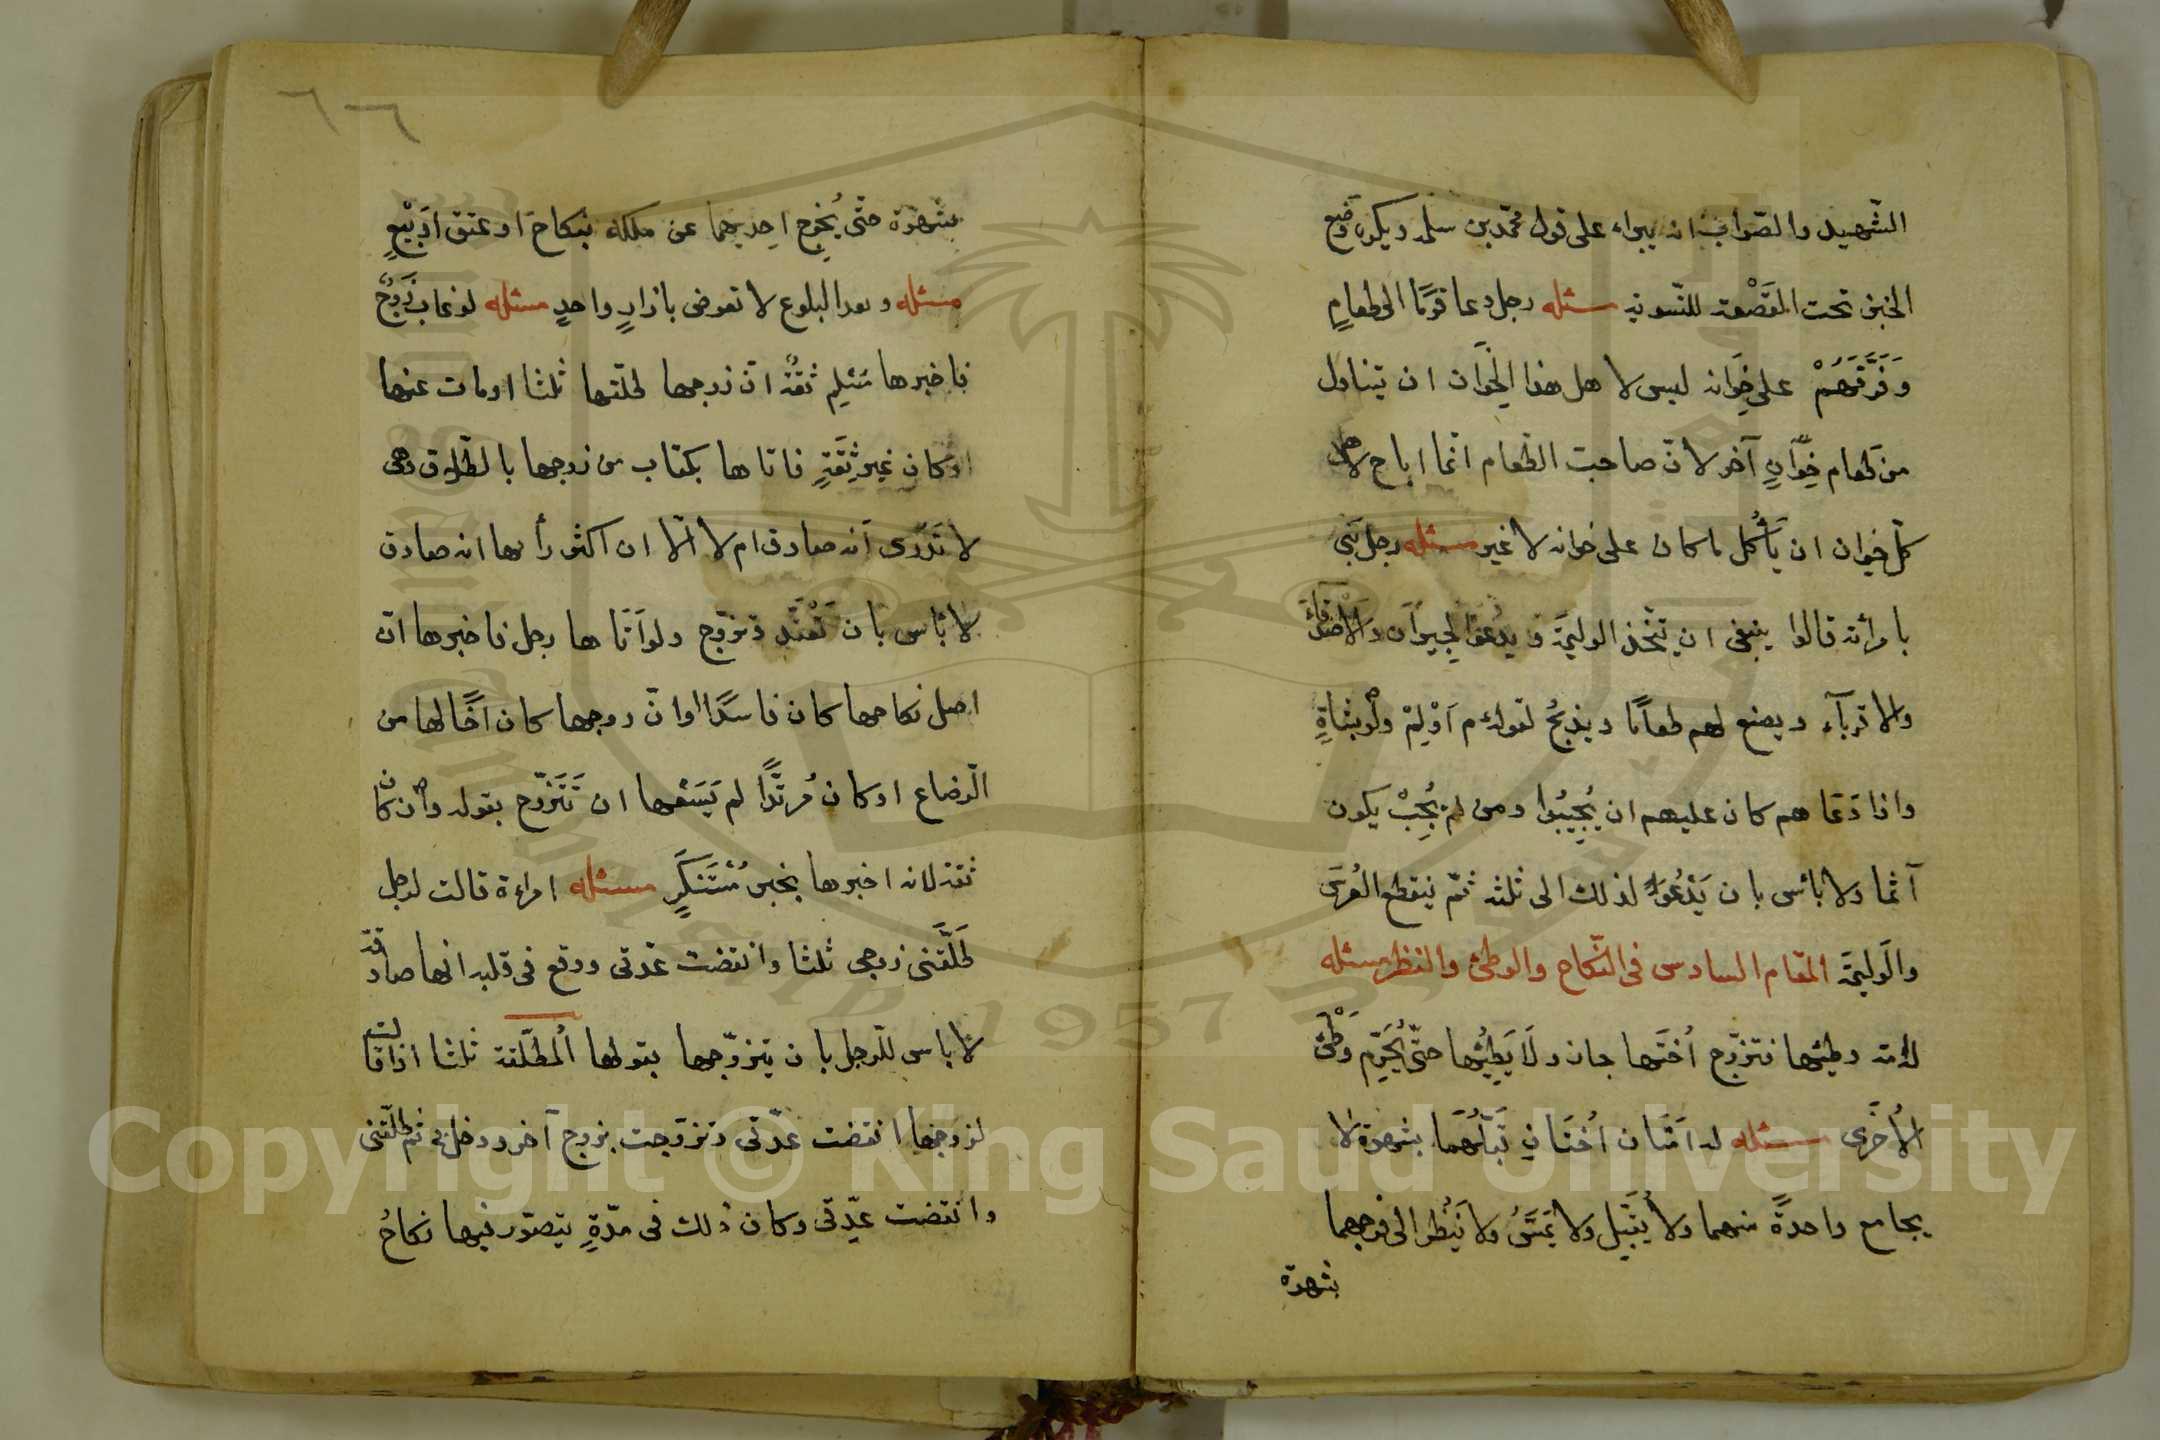 الشّهيد والصّواب انه يبراء على قول محمّد بن سلمه ويكره وَضع
الخبز تحت القَصْعة للتّسوية مسئله رجل دعا قومًا الى طعامٍ
وَفَرَّقَهُمْ على خِوَانه ليس لاهل هذا الخِوَان ان يتناول
من طعام خِوَانٍ آخر لانّ صاحب الطّعام انّما اباح لاهل
كلّ خِوان ان يَأكُل ما كان على خوانه لا غير مسئله رجل بَنَى
بامرأته قالوا ينبغى ان يتّخذ الوليمَة ويدعُوا الجيرَان والاَصْدِقَاءَ
والاقربآء ويصنع لهم طعامًا ويذبَحُ لقوله م اَوْلِمْ ولَوْ بشَاةٍ
واذا دَعَاهم كان عليهم ان يُجيبُوا ومن لم يُجِبْ يكون
آثما ولا بائس بان يَدْعُوَا لذلك الى ثلثه ثمّ ينقطع العُرسَ
والوَليمَة المقام السادس فى النّكاح والوطئ والنظر مسئله
له امة وطيئها فتزوّج اُختَها جاز ولَا يَطِيُها حتّى يُحَرِّم وَطْئ
الاُخرَى مسئله له اَمَتَان اُختَانِ قبّلهُمَا بشهوة لا
يجامع واحدةً منهما ولا يُقبّل ولا يَمَسَّ ولا يَنْظُر الى فرجهما
بشهوة
٦٦
بشهوَة حتّى يُخرِج احديهما عن ملكه بنكاح او عتق اَو بَيْعٍ
مسئله وبعد البلوغ لا تعرض بازارٍ واحدٍ مسئله لو غاب زَوجٌ
فاخبرها مُسْلِم ثقَة انّ زوجها طلّقها ثلثا او مات عنها
او كان غير ثِقَةٍ فاتاها بكتاب من زوجها بالطّلاق وهى
لا تَدْرى اَنه صادق ام لا الّا ان اكثر رأيها انه صادق
لا بأس بان تَعْتَدّ وتزوّج ولو اَتَاها رجل فاخبرها انّ
اصل نكاحها كان فاسدًا او انّ زوجها كان اَخًا لها من
الرّضاع او كان مُرتدًّا لم يَسَعْها ان تَتَزَوّج بقوله وان كان
ثقة لانه اخبرها بخبرٍ مُسْتَنكَرٍ مسئله امراءة قالت لرجل
طَلَّقَنى زوجى ثلثا وانقضت عدّتى ووقع فى قلبه انّها صادقة
لا باس للرّجل بان يتزوّجها بقولها المُطَلّقة ثلثا اذا قالت
لزوجها انقضت عدّتى وتزوّجت بزوج آخر ودخل بى ثم طلّقنى
وانقضت عدّتى وكان ذلك فى مدّةٍ يتصوّر فيها نكاحُ
Copyright © King Saud University
1957